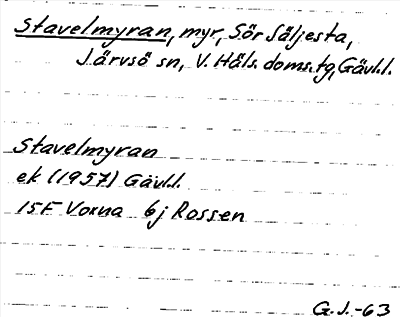 Stavelmyran, myr, Sör Säljesta,
Järvsö sn, V. Häls. doms. tg, Gävl.l.
Stavelmyran
ek (1957) Gävl.l.
15F Voxna 6j Rossen
G.J.-63